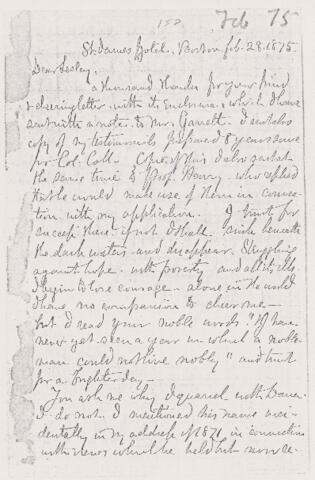 152 Feb 75
St. James Hotel, Boston Feb. 28. 1875.
Dear Lesley
a thousand thanks for your kind
& cheering letter with its Enclosure which I have
sent with a note to Mr. Garrett. I sent also
copy of my testimonials prepared 8 years since
for Col. Coll. Copies of this I also sent at
the same time to Prof. Henry who replied
that he would make use of them in connec-
tion with my application. I trust for
success there if not I shall sink beneath
the dark waters and disappear. Struggling
against hope with poverty and all its ills
I begin to lose courage - alone in the world
I have no companion to cheer me -
but I read your noble words "I have
never yet seen a year in which a noble
man could not live nobly" and trust
for a brighter day -
You ask me why I quarrel with Dana.
I do not. I mentioned his name acci-
dentally in my address of 1871 in connection
with views which he held but now re-